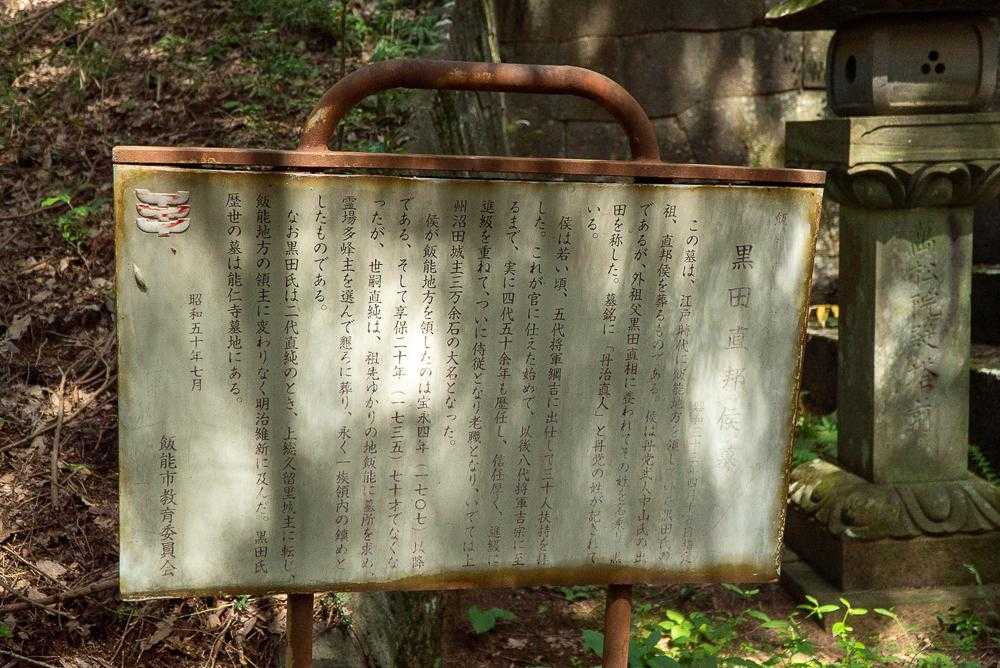 黒田直邦侯墓
この墓は、江戸時代に飯能地方を領し
祖、直邦侯を葬るものである。侯は丹党武人中山氏の出
であるが、外祖父黒田直相に養われてその姓を名乗り
田を称した。墓銘に「丹治直人」と丹党の姓が記されて
いる。
侯は若い頃、五代将軍綱吉に出仕して二十人扶持を
した。これが官に仕えた始めて、以後八代将軍吉宗に至
るまで、実に四代五十余年も歴任し、信任厚く、進級に
進級を重ねて、ついに侍従となり老職となり、いては上
州沼田城主三万余石の大名となった。
侯が飯能地方を領したのは宝永四年(一七〇七)以降
である、そして享保二十年(一七三五)七十才でなくな
ったが、世嗣直純は、祖先ゆかりの地飯能に墓所を求め、
霊場多峰主を選んで懇ろに葬り、永く一族領内の鎮めと
したものである。
なお黒田氏は二代直純のとき、上総久留里城主に転じ、
飯能地方の領主に変わりなく明治維新に及んだ。黒田氏
歴世の墓は能仁寺墓地にある。
昭和五十年七月
飯能市教育委員会